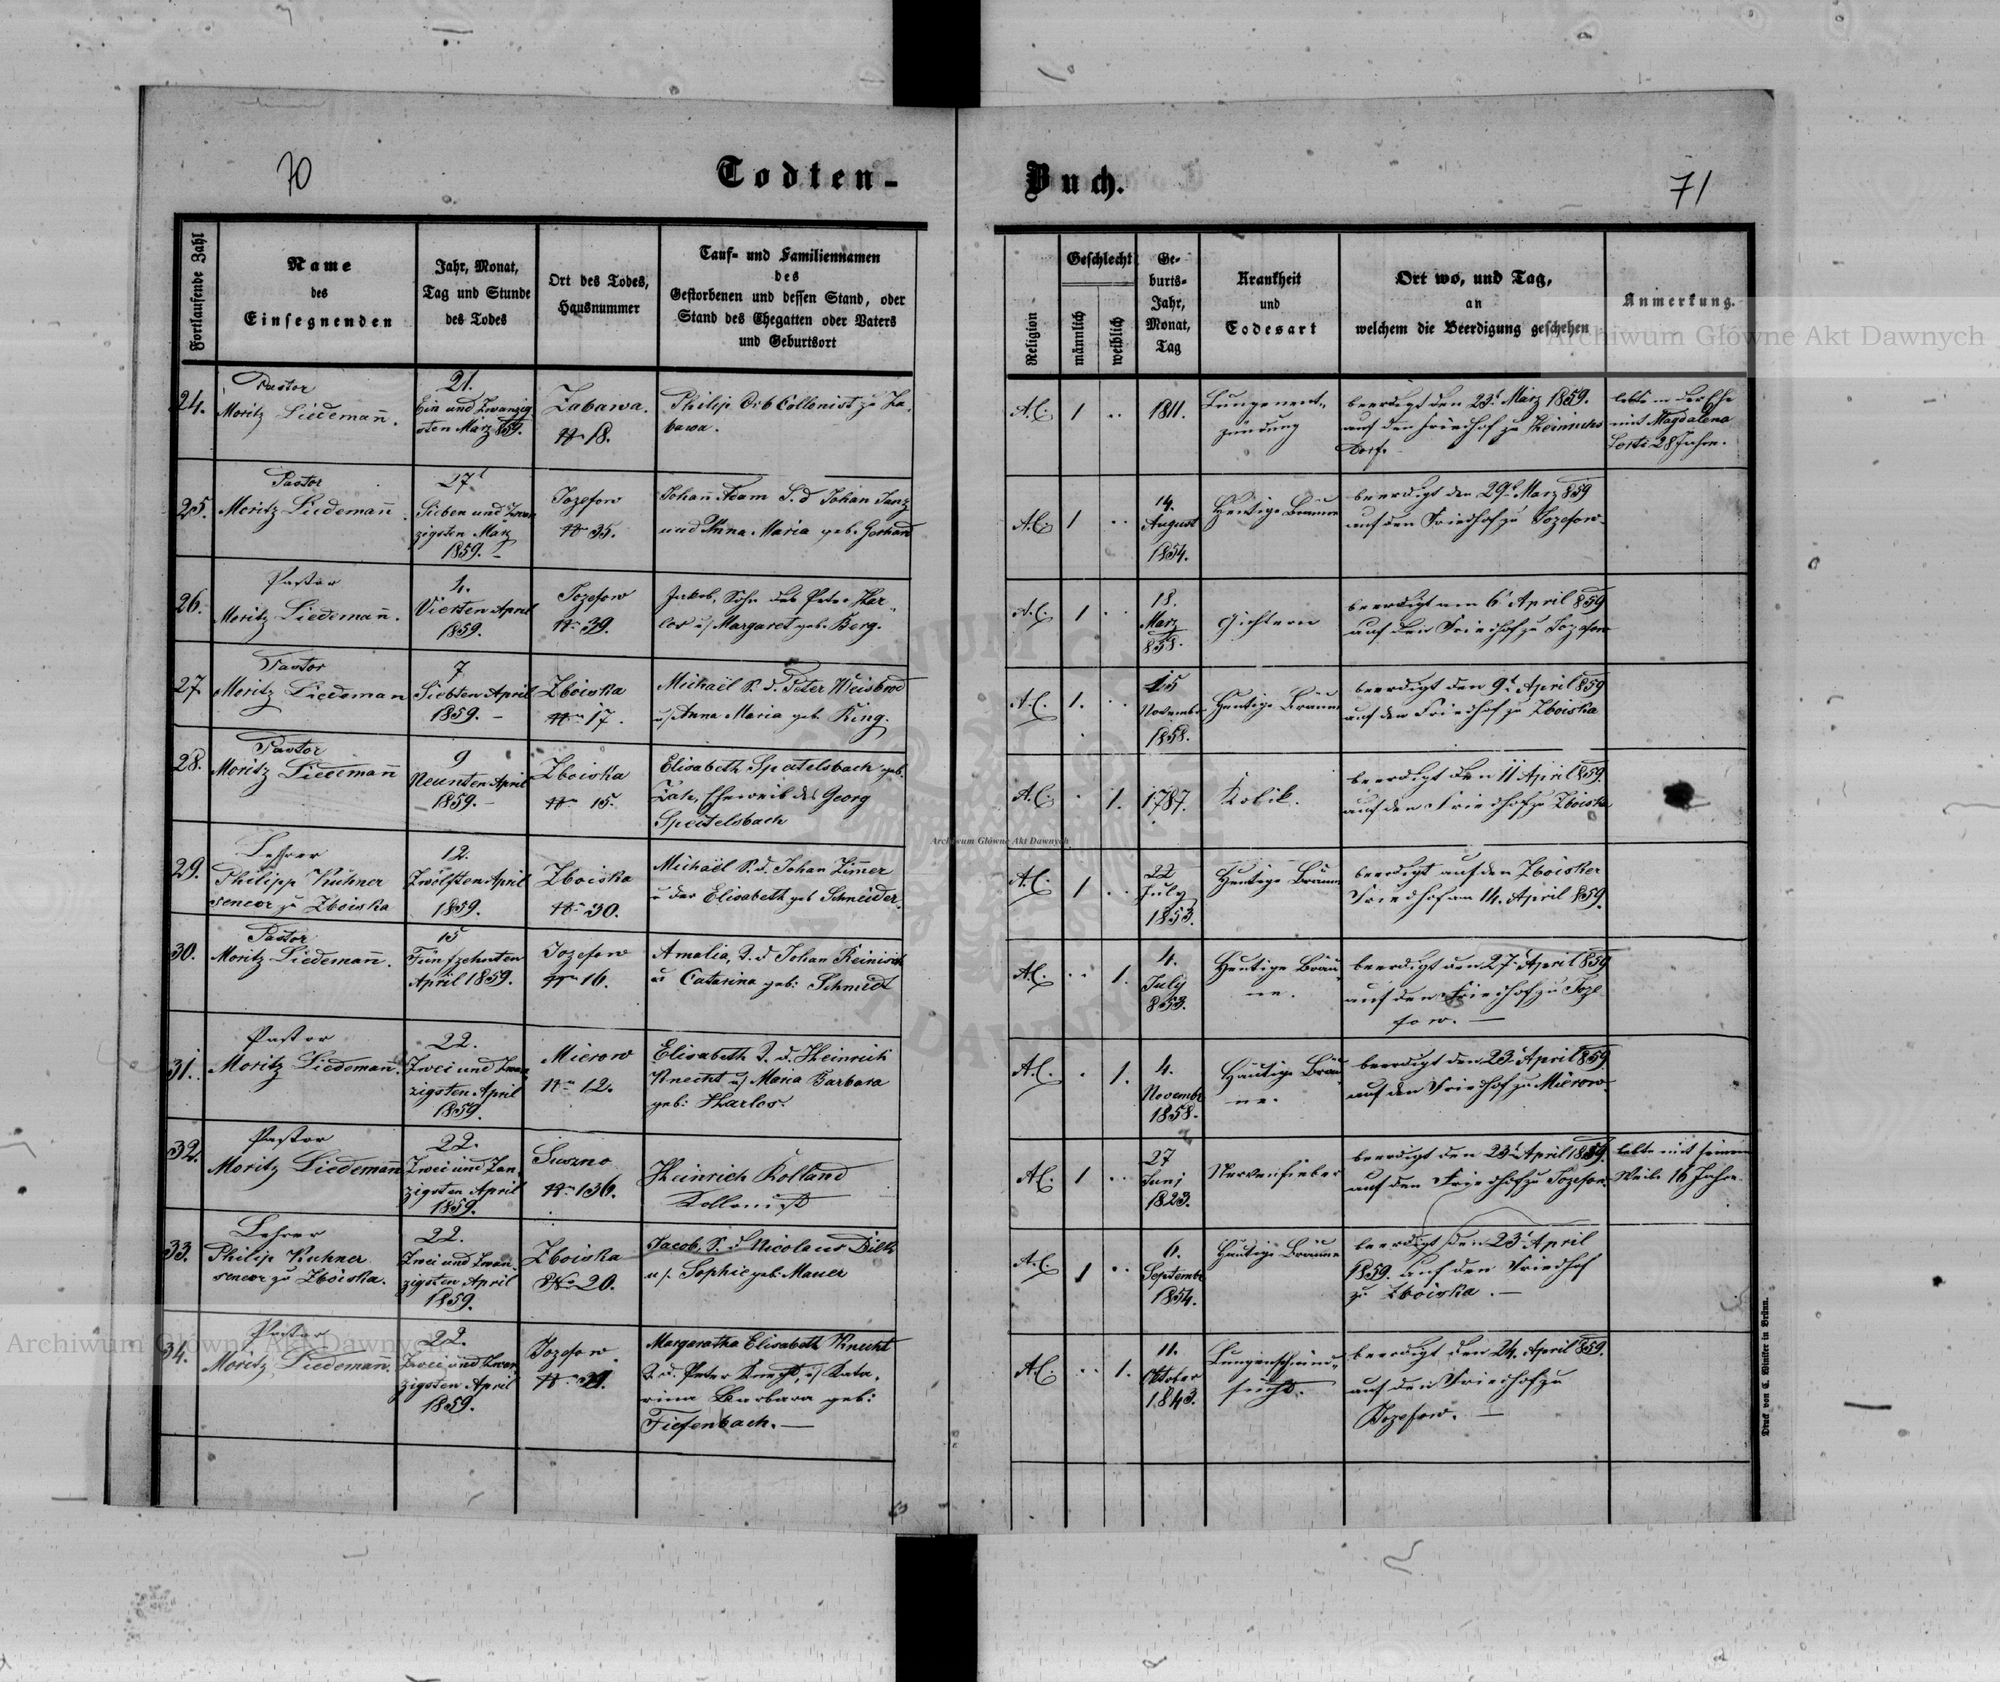 70
Todten-
Buch.
71
Fortlaufende Zahl
Name
des
Einsegnenden
Jahr, Monat,
Tag und Stunde
des Todes
Ort des Todes,
Hausnummer
Tauf- und Familiennamen
des
Gestorbenen und dessen Stand, oder
Stand des Ehegatten oder Vaters
und Geburtsort
Religion
Geschlecht
männlich
weiblich
Ge-
burts-
Jahr,
Monat,
Tag
Krankheit
und
Todesart
Ort wo, und Tag,
an
welchem die Beerdigung geschehen
Anmerkung.
24.
Pastor
Moritz Liedemañ.
21.
Ein und Zwanzig
sten März 859.
Zabawa.
No 18.
Philip Orb Collonist zu Za-
bawa.
A.C.
1
1811.
Lungenent-
zündung
beerdigt den 23t März 1859.
auf den Friedhof zu Heinrichs
dorf.
lebte in der Ehe
mit Magdalena
28 Jahre.
25.
Pastor
Moritz Liedemañ.
27t
Sieben und Zwan
zigsten März
1859.
Jozefow
No 35.
Johañ Adam S. d Johan
und Anna Maria geb.
A.C.
1
14.
August
1854.
Häutige Bräune
beerdigt den 29t März 859
auf den Friedhof zu Jozefow.
26.
Pastor
Moritz Liedemañ.
4.
Vierten April
1859.
Jozefow
No 39.
Jakob, Sohn des Peter Har-
los u/ Margaret geb. Berg.
A.C.
1
18.
März
858.
Gichtern
beerdigt am 6t April 859
auf den Friedhof zu Jozefow
27
Pastor
Moritz Liedeman
7
Siebten April
1859. -
Zboiska
No 17.
Michaël S. d. Peter Weisbrod
u/ Anna Maria geb. King.
A.C.
1.
15
November
1858.
Häutige Bräune
beerdigt den 9t April 859
auf den Friedhof zu Zboiska
28.
Pastor
Moritz Liedemañ
9
Neunten April
1859. -
Zboiska
No 15.
Elisabeth Speitelsbach geb.
Eheweib des Georg
Speitelsbach
A.C.
1.
1787.
Kolik.
beerdigt den 11 April 859.
auf den Friedhof zu Zboiska
29.
Lehrer
Philipp Kühner
senior zu Zboiska
12.
Zwölften April
1859.
Zboiska
No 30.
Michaël S. d. Johan Zim̃er
u der Elisabeth geb Schneider.
A.C.
1
22
July
1853.
Häutige Bräune
beerdigt auf den Zboisker
Friedhof am 14. April 859.
30.
Pastor
Moritz Liedemañ.
15
Fünfzehnten
April 1859.
Jozefow
No 16.
Amalia, T. d Johan Reinisch
u Catarina geb: Schmidt
A.C.
1.
4.
July
853.
Häutige Bräu
ne.
beerdigt den 27. April 859
auf den Friedhof zu Joze
fow. —
31.
Pastor
Moritz Liedemañ.
22.
Zwei und Zwan
zigsten April
1859.
Mierow
No 12.
Elisabeth T. d. Heinrich
Knecht u/ Maria Barbara
geb: Harlos.
A.C.
1.
4.
Novemb
1858.
Häutige Bräu
ne.
beerdigt den 23. April 859
auf den Friedhof zu Mierow
32.
Pastor
Moritz Liedemañ
22.
Zwei und Zan-
zigsten April
1859.
Suszno
No 136.
Heinrich Rolland
Collonist
A.C.
1
27
Juni
1823.
Nervenfieber
beerdigt den 23t April 1859.
auf den Friedhof zu Jozefow.
lebte mit seinem
Weibe 16 Jahre.
33.
Lehrer
Philip Kuhner
senior zu Zboiska.
22.
Zwei und Zwan-
zigsten April
1859.
Zboiska
No 20.
Jacob, S. d Nicolaus
u/. Sophie geb. Mauer
A.C.
1
6.
Septemb
1854.
Häutige Bräune
beerdigt den 23t April
1859. auf den Friedhof
zu Zboiska. —
34.
Pastor
Moritz Liedemañ.
22.
Zwei und Zwan
zigsten April
1859.
Jozefow.
Margaratha Elisabeth Knecht
T. d. Peter Knecht, u/ Kata-
rina Barbara geb:
Tiefenbach. —
A.C.
1.
11.
Oktober
1843.
Lungenschwind-
sucht.
beerdigt den 24. April 859.
auf den Friedhof zu
Jozefow. —
Druck von C. Winiker in Brünn.
Archiwum Główne Akt Dawnych
Archiwum Główne Akt Dawnych
Archiwum Główne Akt Dawnych